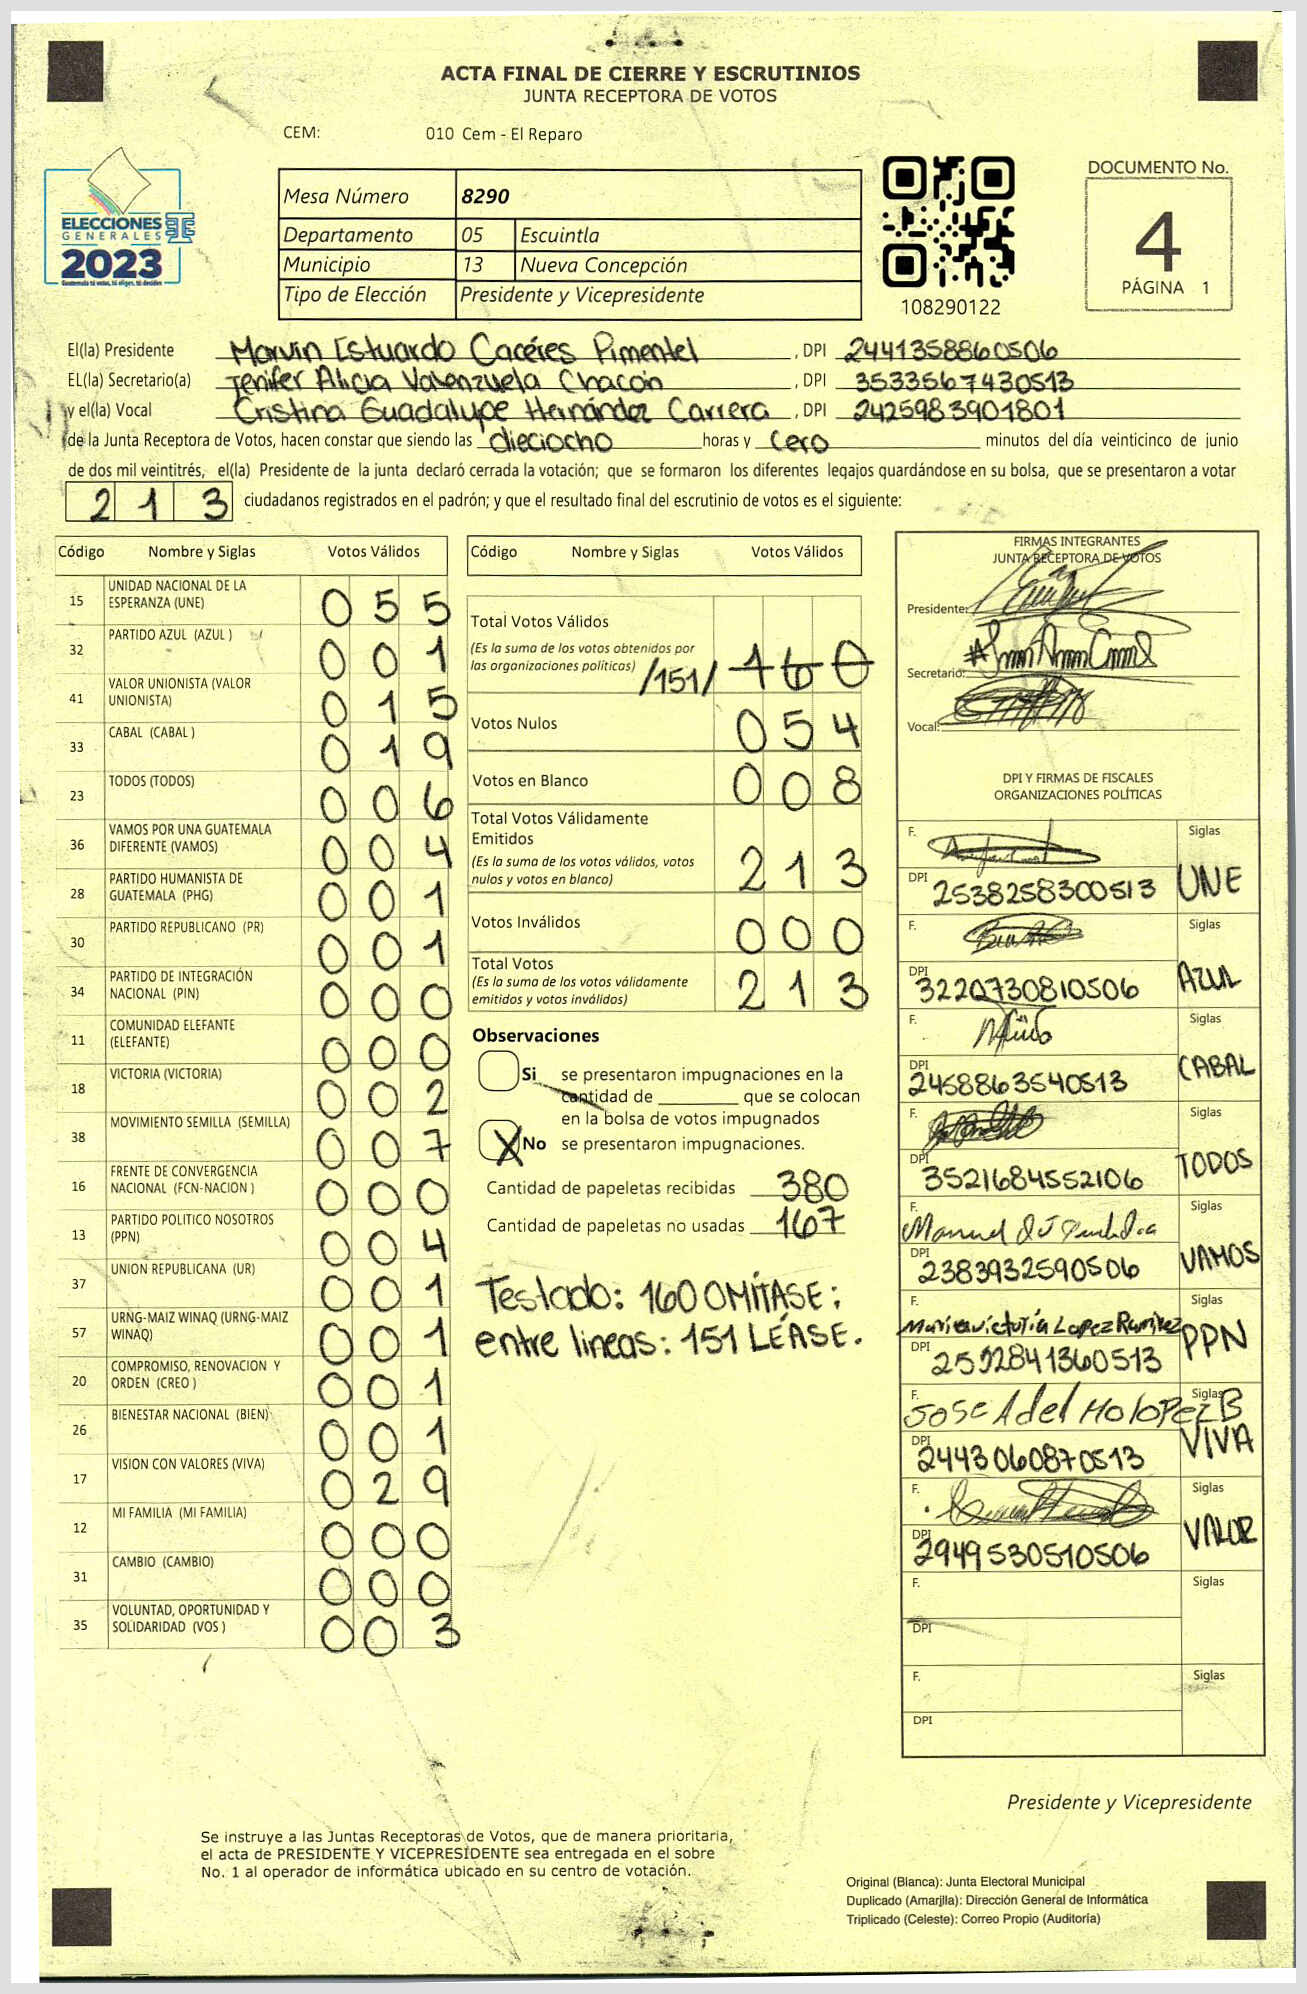 ACTA FINAL DE CIERRE Y ESCRUTINIOS
JUNTA RECEPTORA DE VOTOS
CEM: 010 Cem - El Reparo
ELECCIONES
GENERALES
2023
Guatemala tú votas, tú eliges, tú decides
Mesa Número 8290
Departamento 05 Escuintla
Municipio 13 Nueva Concepción
Tipo de Elección Presidente y Vicepresidente
108290122
DOCUMENTO No.
4
PÁGINA 1
El(la) Presidente Marvin Estuardo Cacéres Pimentel, DPI 2441358860506
EL(la) Secretario(a) Jenifer Alicia Valenzuela Chacón, DPI 3533567430513
y el(la) Vocal Cristina Guadalupe Hernández Carrera, DPI 2425983901801
de la Junta Receptora de Votos, hacen constar que siendo las dieciocho horas y cero minutos del día veinticinco de junio
de dos mil veintitrés, el(la) Presidente de la junta declaró cerrada la votación; que se formaron los diferentes legajos guardándose en su bolsa, que se presentaron a votar
213 ciudadanos registrados en el padrón; y que el resultado final del escrutinio de votos es el siguiente:
Código Nombre y Siglas Votos Válidos
15 UNIDAD NACIONAL DE LA ESPERANZA (UNE) 055
32 PARTIDO AZUL (AZUL ) 001
41 VALOR UNIONISTA (VALOR UNIONISTA) 015
33 CABAL (CABAL ) 019
23 TODOS (TODOS) 006
36 VAMOS POR UNA GUATEMALA DIFERENTE (VAMOS) 004
28 PARTIDO HUMANISTA DE GUATEMALA (PHG) 001
30 PARTIDO REPUBLICANO (PR) 001
34 PARTIDO DE INTEGRACIÓN NACIONAL (PIN) 000
11 COMUNIDAD ELEFANTE (ELEFANTE) 000
18 VICTORIA (VICTORIA) 002
38 MOVIMIENTO SEMILLA (SEMILLA) 007
16 FRENTE DE CONVERGENCIA NACIONAL (FCN-NACION ) 000
13 PARTIDO POLITICO NOSOTROS (PPN) 004
37 UNION REPUBLICANA (UR) 001
57 URNG-MAIZ WINAQ (URNG-MAIZ WINAQ) 001
20 COMPROMISO, RENOVACION Y ORDEN (CREO ) 001
26 BIENESTAR NACIONAL (BIEN) 001
17 VISION CON VALORES (VIVA) 029
12 MI FAMILIA (MI FAMILIA) 000
31 CAMBIO (CAMBIO) 000
35 VOLUNTAD, OPORTUNIDAD Y SOLIDARIDAD (VOS ) 003
Código Nombre y Siglas Votos Válidos
Total Votos Válidos
(Es la suma de los votos obtenidos por
las organizaciones políticas) /151/ 160
Votos Nulos 054
Votos en Blanco 008
Total Votos Válidamente
Emitidos
(Es la suma de los votos válidos, votos
nulos y votos en blanco) 213
Votos Inválidos 000
Total Votos
(Es la suma de los votos válidamente
emitidos y votos inválidos) 213
Observaciones
Si se presentaron impugnaciones en la
cantidad de ________ que se colocan
en la bolsa de votos impugnados
X No se presentaron impugnaciones.
Cantidad de papeletas recibidas 380
Cantidad de papeletas no usadas 167
Testado: 160 OMÍTASE:
entre lineas: 151 LÉASE.
FIRMAS INTEGRANTES
JUNTA RECEPTORA DE VOTOS
Presidente:
Secretario:
Vocal:
DPI Y FIRMAS DE FISCALES
ORGANIZACIONES POLÍTICAS
F. Siglas
DPI 2538258300513 UNE
F. Siglas
DPI 3220730810506 AZUL
F. Siglas
DPI 2458863540513 CABAL
F. Siglas
DPI 3521684552106 TODOS
F. Manuel Siglas
DPI 2383932590506 VAMOS
F. Maria victoria Lopez Ramirez Siglas
DPI 2592841360513 PPN
F. Jose Adel Mo lopez B Siglas
DPI 2443060870513 VIVA
F. Siglas
DPI 2949530510506 VALOR
F. Siglas
DPI
F. Siglas
DPI
Presidente y Vicepresidente
Se instruye a las Juntas Receptoras de Votos, que de manera prioritaria,
el acta de PRESIDENTE Y VICEPRESIDENTE sea entregada en el sobre
No. 1 al operador de informática ubicado en su centro de votación.
Original (Blanca): Junta Electoral Municipal
Duplicado (Amarjlla): Dirección General de Informática
Triplicado (Celeste): Correo Propio (Auditoría)